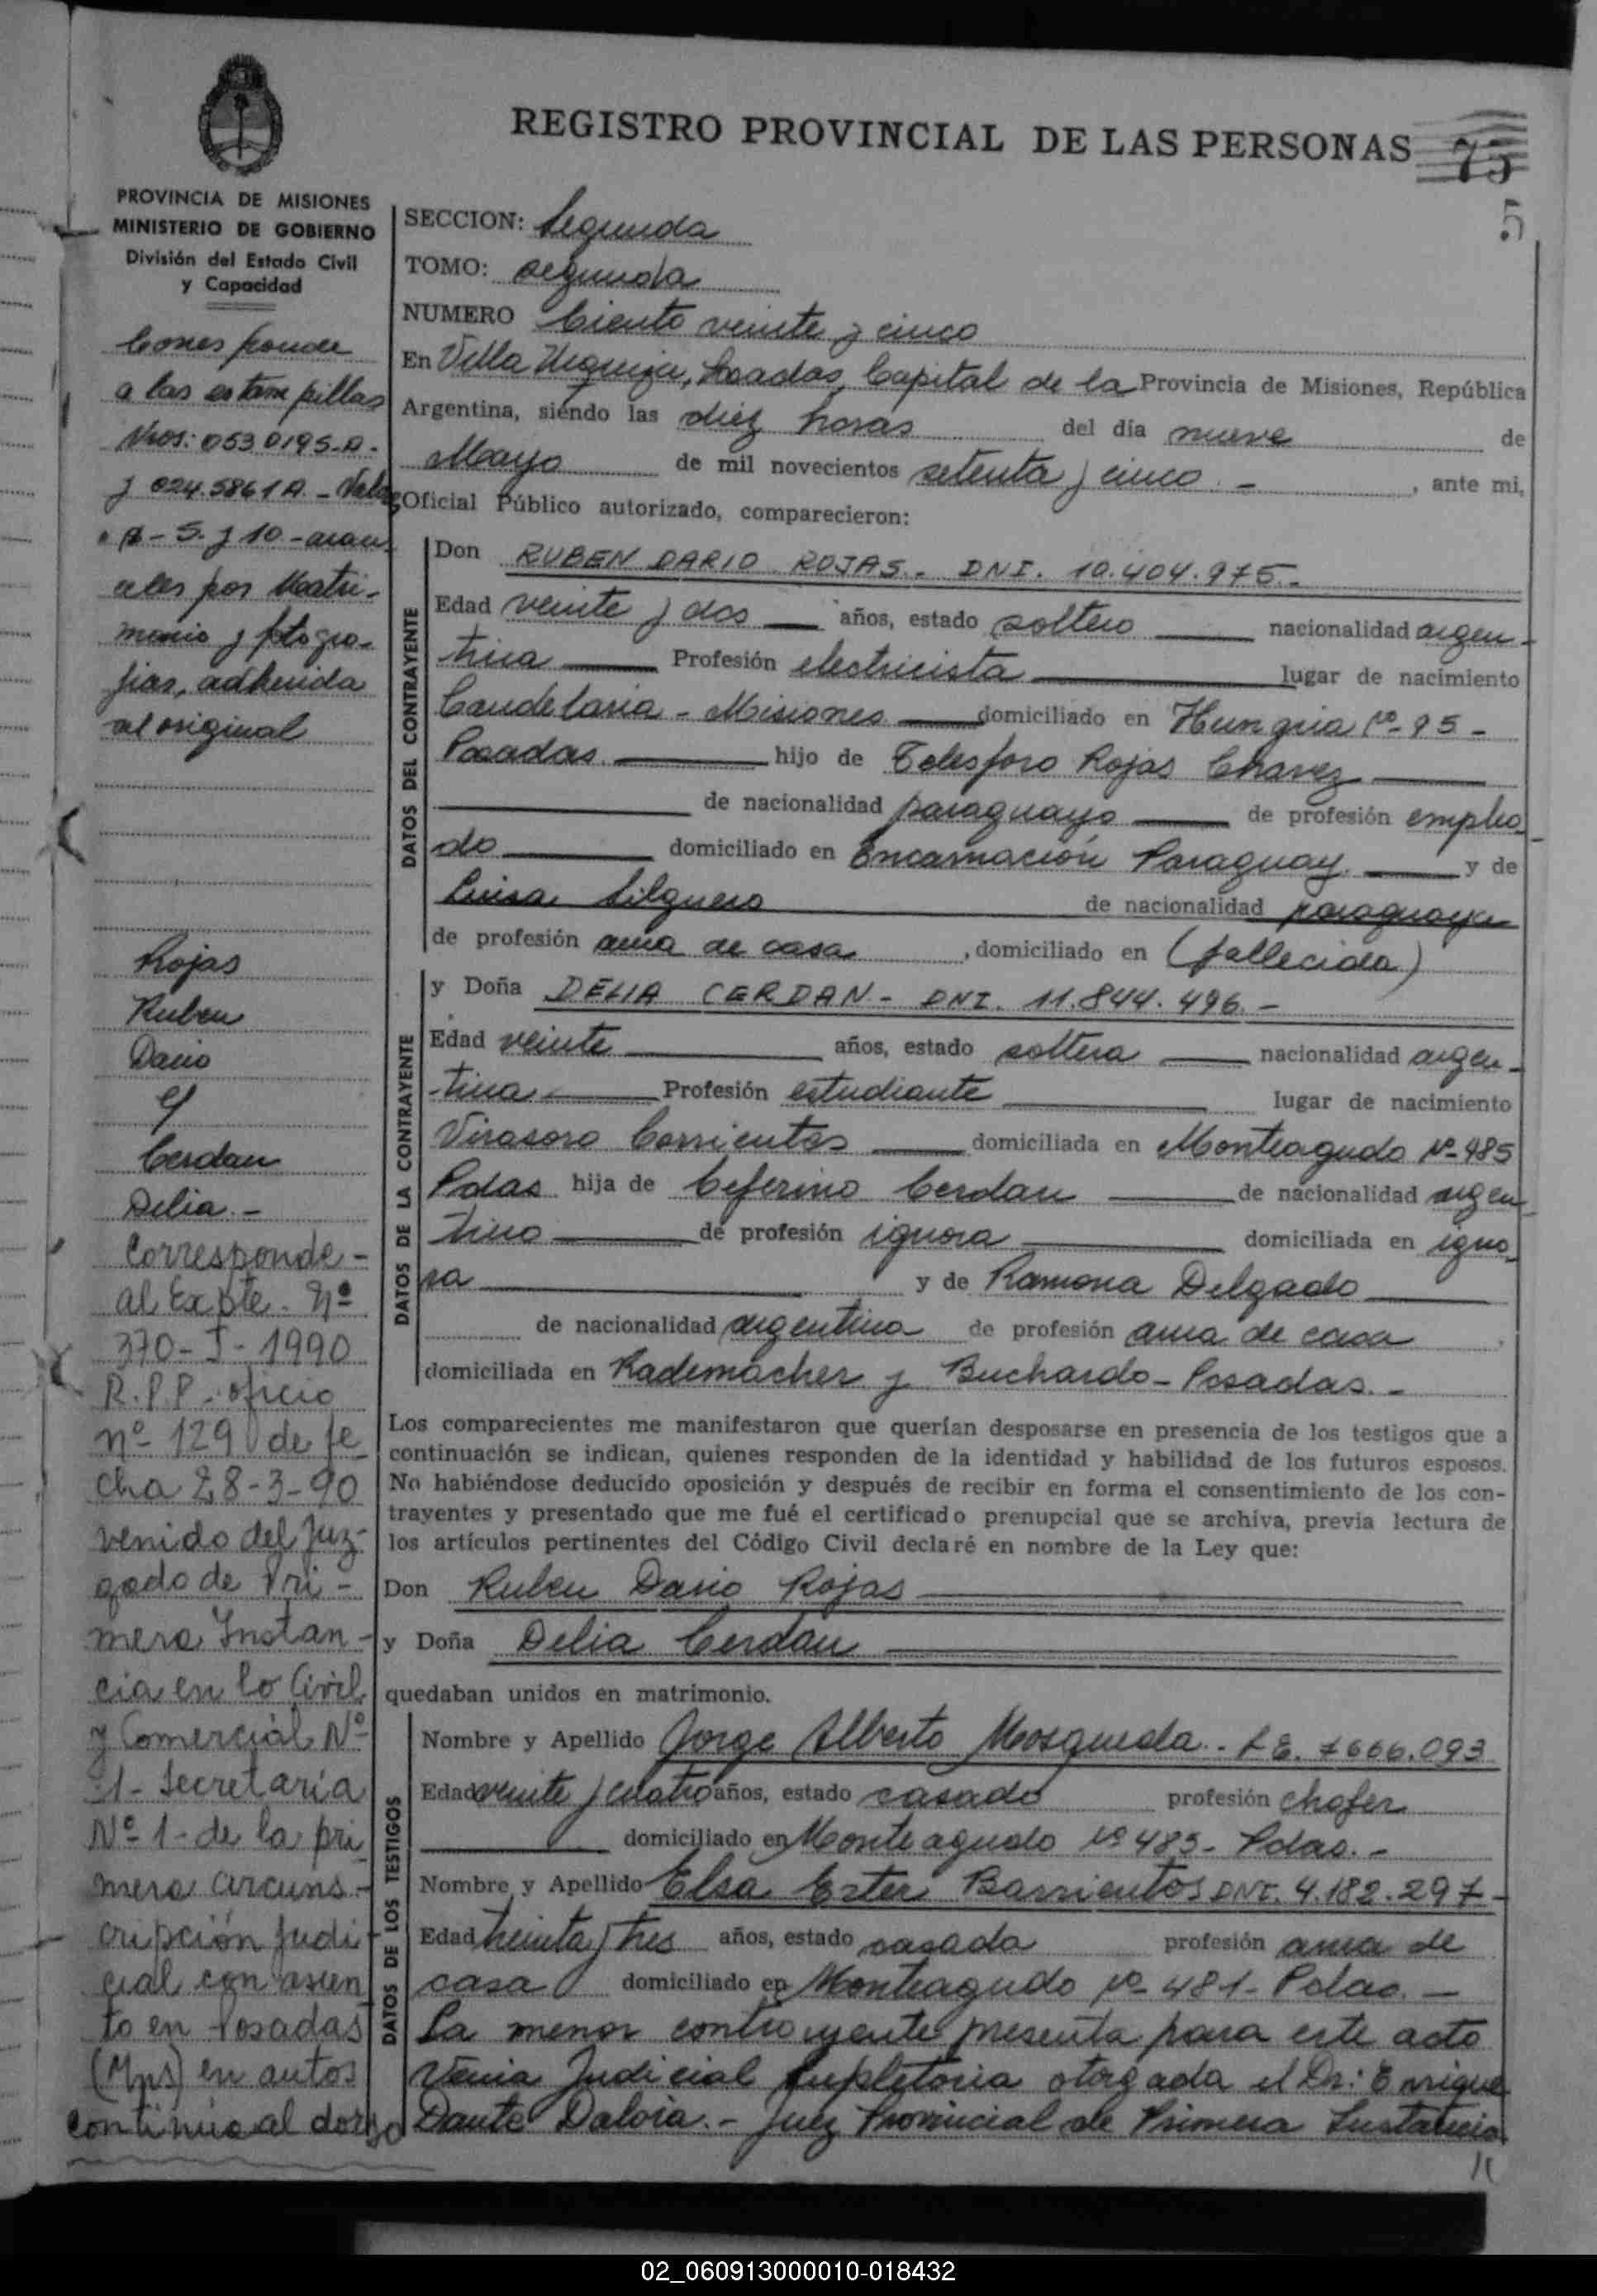 REGISTRO PROVINCIAL DE LAS PERSONAS
75
5
PROVINCIA DE MISIONES
MINISTERIO DE GOBIERNO
División del Estado Civil
y Capacidad
Corresponde
a las estampillas
Nros: 0530195-A-
y 024.5861 A - Valor
$ - 5. y 10 - aran
celes por Matri-
monio y fotogra-
fias, adherida
al original
Rojas
Ruben
Dario
c/
Cerdan
Delia.-
Corresponde-
al Expte. Nº
370-I-1990
R.P.P. oficio
nº 129 de fe
cha 28-3-90
venido del Juz-
gado de Pri-
mera Instan-
cia en lo Civil
y Comercial Nº
1- Secretaría
Nº 1- de la pri
mera circuns-
cripción Judi
cial con asien
to en Posadas
(Mns) en autos
continúa al dorso
SECCION: Segunda
TOMO: segunda
NUMERO Ciento veinte y cinco
En Villa Urquiza, Posadas, Capital de la Provincia de Misiones, República
Argentina, siendo las diez horas del día nueve de
Mayo de mil novecientos setenta y cinco.- , ante mi,
Oficial Público autorizado, comparecieron:
DATOS DEL CONTRAYENTE
Don RUBEN DARIO ROJAS.- DNI. 10.404.975.-
Edad veinte y dos años, estado soltero nacionalidad argen-
tina Profesión electricista lugar de nacimiento
Candelaria - Misiones domiciliado en Hungria Nº 95-
Posadas. hijo de Telesforo Rojas Chavez
de nacionalidad paraguayo de profesión emplea-
do domiciliado en Encarnación Paraguay. y de
Luisa Silguero de nacionalidad paraguaya
de profesión ama de casa , domiciliado en (fallecida)
DATOS DE LA CONTRAYENTE
y Doña DELIA CERDAN- DNI. 11.844.496.-
Edad veinte años, estado soltera nacionalidad argen-
tina Profesión estudiante lugar de nacimiento
Virasoro Corrientes domiciliada en Monteagudo Nº 485
Pdas hija de Ceferino Cerdan de nacionalidad argen
tino de profesión ignora domiciliada en igno-
ra y de Ramona Delgado
de nacionalidad argentina de profesión ama de casa
domiciliada en Rademacher y Buchardo - Posadas.-
Los comparecientes me manifestaron que querían desposarse en presencia de los testigos que a
continuación se indican, quienes responden de la identidad y habilidad de los futuros esposos.
No habiéndose deducido oposición y después de recibir en forma el consentimiento de los con-
trayentes y presentado que me fué el certificado prenupcial que se archiva, previa lectura de
los artículos pertinentes del Código Civil declaré en nombre de la Ley que:
Don Ruben Dario Rojas
y Doña Delia Cerdan
quedaban unidos en matrimonio.
DATOS DE LOS TESTIGOS
Nombre y Apellido Jorge Alberto Mosqueda.- LE. 7666.093
Edad veinte y cuatro años, estado casado profesión chofer
domiciliado en Monteagudo Nº 485- Pdas.-
Nombre y Apellido Elsa Ester Barrientos DNI. 4.182.297-
Edad treinta y tres años, estado casada profesión ama de
casa domiciliado en Monteagudo Nº 481- Pdas.-
La menor contrayente presenta para este acto
Venia Judicial supletoria otorgada el Dr: Enrique
Dante Daloia.- Juez Provincial de Primera Instancia
//
02_060913000010-018432